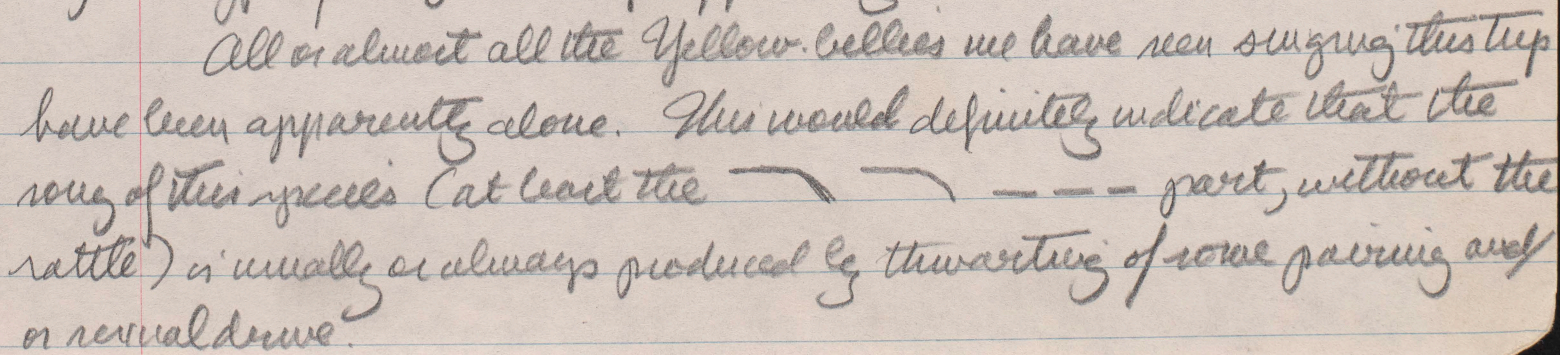 All or almost all the Yellow-bellies we have seen singing this trip
have been apparently alone. This would definitely indicate that the
song of this species (at least the — — — — — part, without the
rattle) is usually or always produced by thwarting of some pairing and/
or sexual drive.